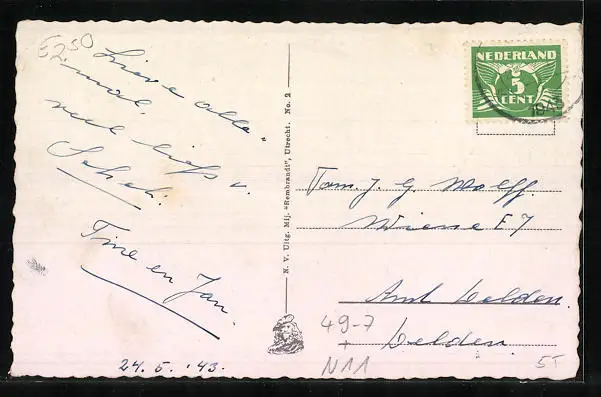 €250
Lieve alle
maal,
veel liefs v.
Tine en Jan.
24.5.'43.
N. V. Uitg. Mij. "Rembrandt", Utrecht. No. 2
NEDERLAND
5
CENT
1943
Fam. J. G. Wolff.
Wiene E 7
Amt Delden.
Delden.
49-7
+
N11
5T